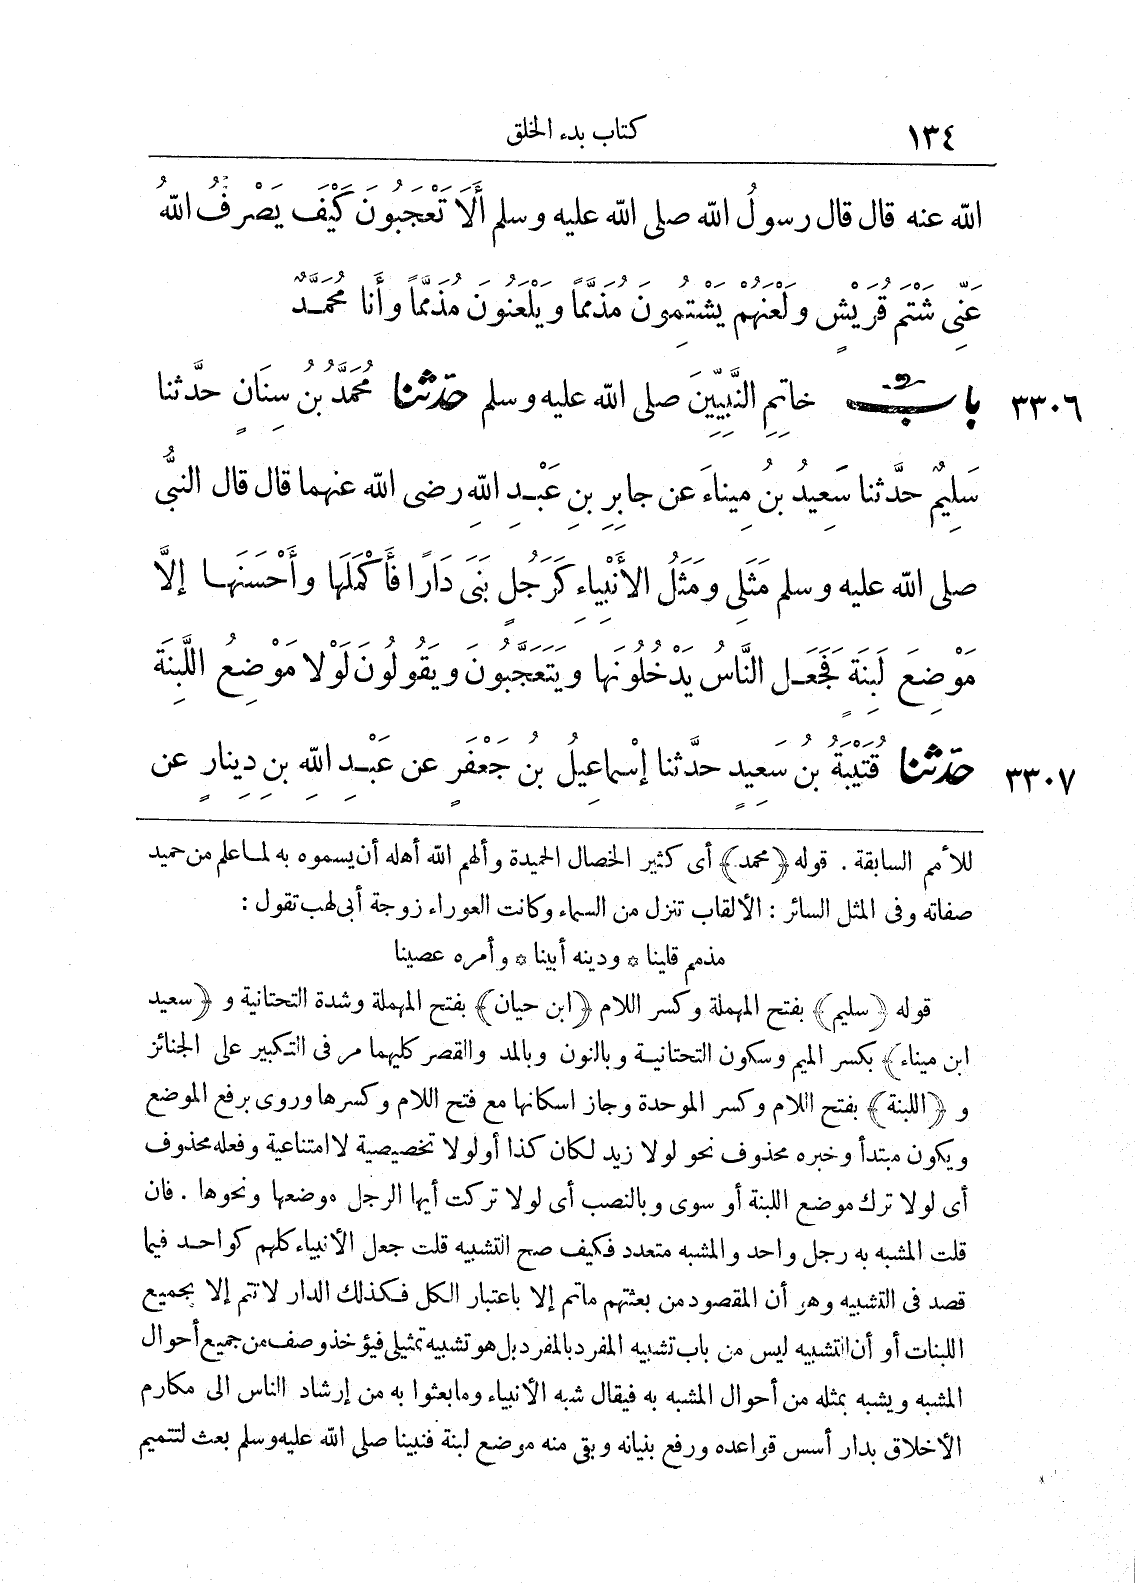 ١٣٤
كتاب بدء الخلق
الله عنه قال قال رسولُ الله صلى الله عليه وسلم أَلَا تَعْجَبُونَ كَيْفَ يَصْرِفُ اللهُ
عَنِّى شَتْمَ قُرَيْشٍ ولَعْنَهُمْ يَشْتِمُونَ مُذَمَّمًا ويَلْعَنُونَ مُذَمَّمًا وأَنا مُحَمَّدٌ
٣٣٠٦ بابُ خاتِمِ النَّبِيِّينَ صلى الله عليه وسلم حدّثنا مُحَمَّدُ بنُ سِنَانٍ حدَّثنا
سَلِيمٌ حدَّثنا سَعِيدُ بنُ مِيناءَ عن جابِرِ بنِ عَبْدِ اللهِ رضى الله عنهما قال قال النبىُّ
صلى الله عليه وسلم مَثَلِى ومَثَلُ الأَنْبِياءِ كَرَجُلٍ بَنَى دَارًا فَأَكْمَلَها وأَحْسَنَها إلَّا
مَوْضِعَ لَبِنَةٍ فَجَعَلَ النَّاسُ يَدْخُلُونَها ويَتَعَجَّبُونَ ويَقُولُونَ لَوْلا مَوْضِعُ اللَّبِنَةَ
٣٣٠٧ حدّثنا قُتَيْبَةُ بنُ سَعِيدٍ حدَّثنا إسْماعِيلُ بنُ جَعْفَرٍ عن عَبْدِ اللهِ بنِ دِينارٍ عن
للأمم السابقة. قوله ﴿محمد﴾ أى كثير الخصال الحميدة وألهم الله أهله أن يسموه به لما علم من حميد
صفاته وفى المثل السائر : الألقاب تنزل من السماء وكانت العوراء زوجة أبى لهب تقول :
مذمم قلينا * ودينه أبينا * وأمره عصينا
قوله ﴿سليم﴾ بفتح المهملة وكسر اللام ﴿ابن حيان﴾ بفتح المهملة وشدة التحتانية و ﴿سعيد
ابن ميناء﴾ بكسر الميم وسكون التحتانية وبالنون وبالمد والقصر كليهما مر فى التكبير على الجنائز
و ﴿اللبنة﴾ بفتح اللام وكسر الموحدة وجاز اسكانها مع فتح اللام وكسرها وروى برفع الموضع
ويكون مبتدأ وخبره محذوف نحو لولا زيد لكان كذا أو لولا تخصيصية لا امتناعية وفعله محذوف
أى لولا ترك موضع اللبنة أو سوى وبالنصب أى لولا تركت أيها الرجل موضعها ونحوها . فان
قلت المشبه به رجل واحد والمشبه متعدد فكيف صح التشبيه قلت جعل الأنبياء كلهم كواحد فيما
قصد فى التشبيه وهو أن المقصود من بعثتهم ما تم إلا باعتبار الكل فكذلك الدار لا تتم إلا بجميع
اللبنات أو أن التشبيه ليس من باب تشبيه المفرد بالمفرد بل هو تشبيه تمثيلى فيؤخذ وصف من جميع أحوال
المشبه ويشبه بمثله من أحوال المشبه به فيقال شبه الأنبياء وما بعثوا به من إرشاد الناس الى مكارم
الأخلاق بدار أسس قواعده ورفع بنيانه وبقى منه موضع لبنة فنبينا صلى الله عليه وسلم بعث لتتميم